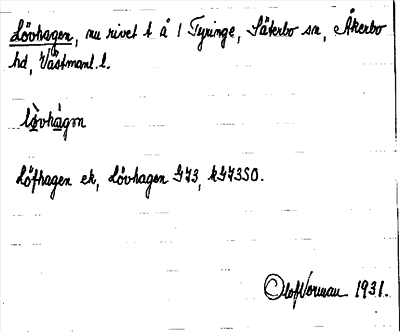 Lövhagen, nu rivet t å 1 Tyringe, Säterbo sn, Åkerbo
hd, Västmanl. l.
lòvhàgɷn
Löfhagen ek, Lövhagen G73, kG73SO.
Olof Norman 1931.